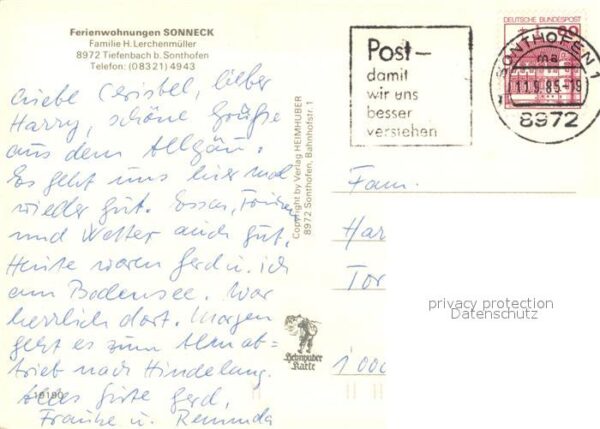 Ferienwohnungen SONNECK
Familie H. Lerchenmüller
8972 Tiefenbach b. Sonthofen
Telefon: (08321) 4943
Liebe Christel, lieber
Harry, schöne Grüße
aus dem Allgäu.
Es geht uns hier mal
wieder gut. Essen, Trinken
und Wetter auch gut.
Heute waren Gerd u. ich
am Bodensee. War
herrlich dort. Morgen
geht es zum Almab=
trieb nach Hindelang.
Alles Gute Gerd,
Frauke u.
19190
Copyright by Verlag HEIMHUBER
8972 Sonthofen, Bahnhofstr. 1
Heimhuber
Karte
Post—
damit
wir uns
besser
verstehen
DEUTSCHE BUNDESPOST
80
SONTHOFEN 1
ma
11.9.85-19
8972
Fam.
Har
Tor
1000
privacy protection
Datenschutz